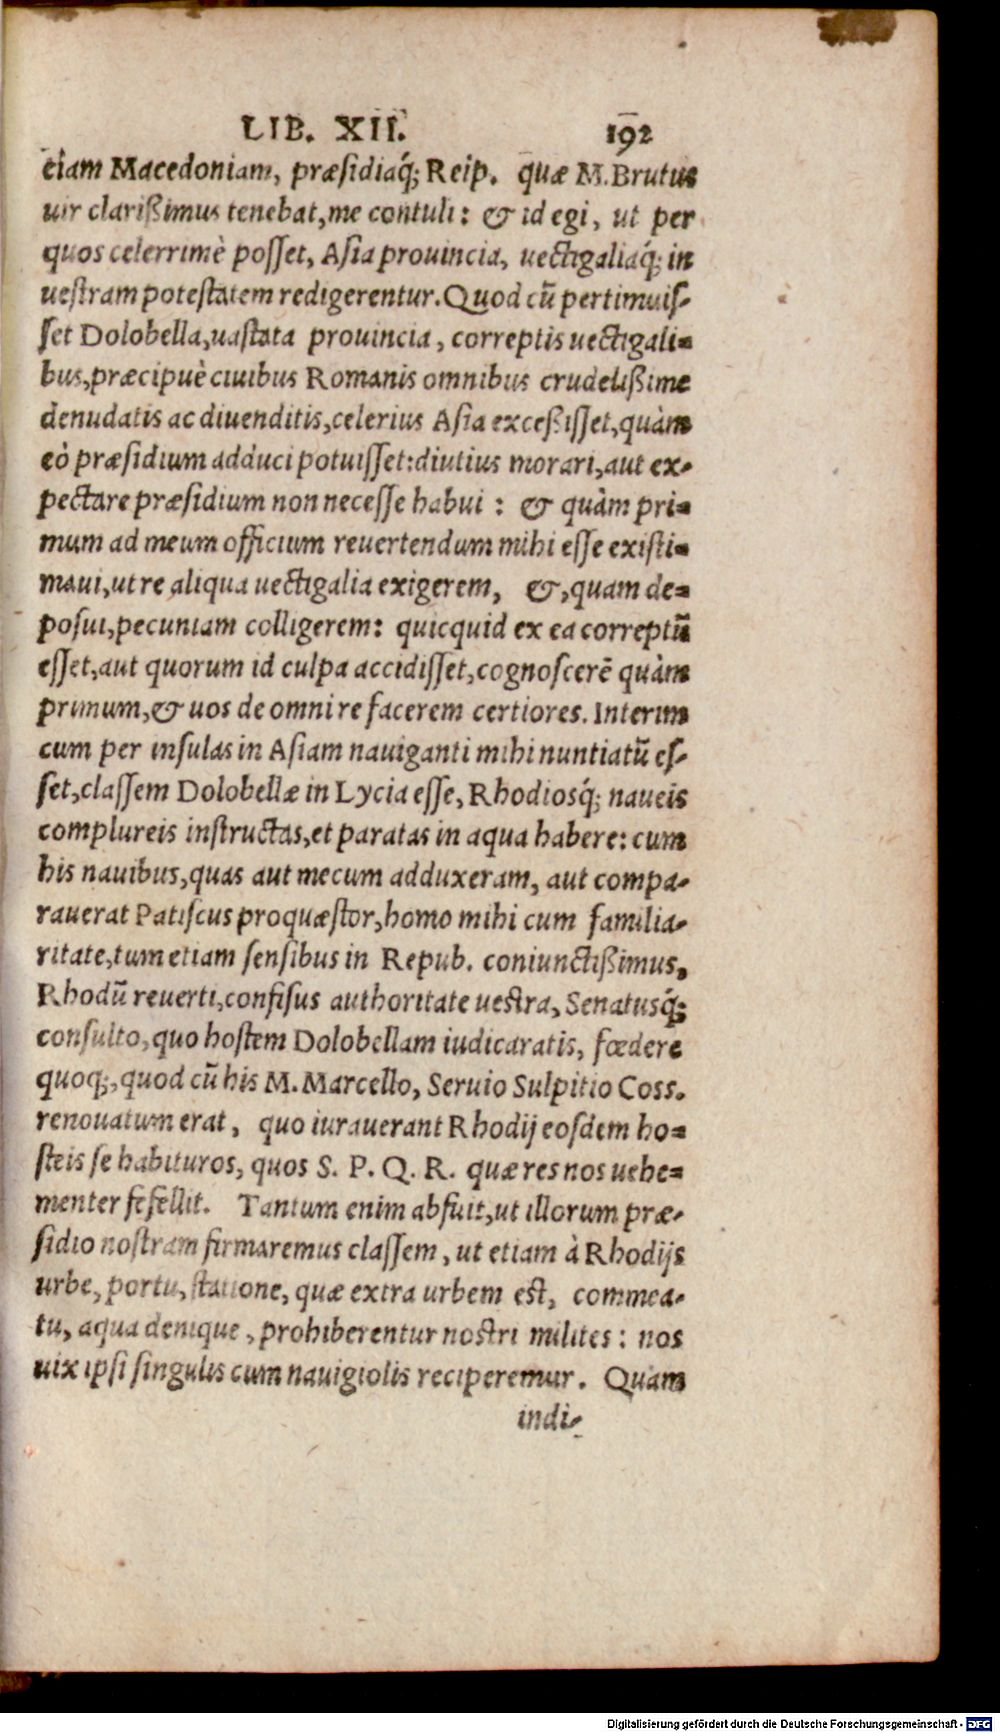 LIB. XII. 192
ciam Macedoniam, præsidiaq́; Reip. quæ M. Brutus
uir clarißimus tenebat, me contuli: & id egi, ut per
quos celerrimè posset, Asia prouincia, uectigaliaq́; in
uestram potestatem redigerentur. Quod cũ pertimuis-
set Dolobella, uastata prouincia, correptis uectigali-
bus, præcipuè ciuibus Romanis omnibus crudelißime
denudatis ac diuenditis, celerius Asia exceßisset, quàm
eò præsidium adduci potuisset: diutius morari, aut ex-
pectare præsidium non necesse habui: & quàm pri-
mum ad meum officium reuertendum mihi esse existi-
maui, ut re aliqua uectigalia exigerem, &, quam de-
posui, pecuniam colligerem: quicquid ex ea correptũ
esset, aut quorum id culpa accidisset, cognoscerẽ quàm
primum, & uos de omni re facerem certiores. Interim
cum per insulas in Asiam nauiganti mihi nuntiatũ es-
set, classem Dolobellæ in Lycia esse, Rhodiosq́; naueis
complureis instructas, et paratas in aqua habere: cum
his nauibus, quas aut mecum adduxeram, aut compa-
rauerat Patiscus proquæstor, homo mihi cum familia-
ritate, tum etiam sensibus in Repub. coniunctißimus,
Rhodũ reuerti, confisus authoritate uestra, Senatusq́;
consulto, quo hostem Dolobellam iudicaratis, fœdere
quoq;, quod cũ his M. Marcello, Seruio Sulpitio Coss.
renouatum erat, quo iurauerant Rhodij eosdem ho-
steis se habituros, quos S. P. Q. R. quæ res nos uehe-
menter fefellit. Tantum enim abfuit, ut illorum præ-
sidio nostram firmaremus classem, ut etiam à Rhodijs
urbe, portu, statione, quæ extra urbem est, commea-
tu, aqua denique, prohiberentur nostri milites: nos
uix ipsi singulis cum nauigiolis reciperemur. Quam
indi-
Digitalisierung gefördert durch die Deutsche Forschungsgemeinschaft - DFG